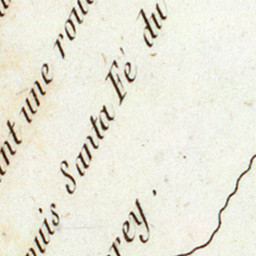 ant une rou
puis Santa Fé du
rey.